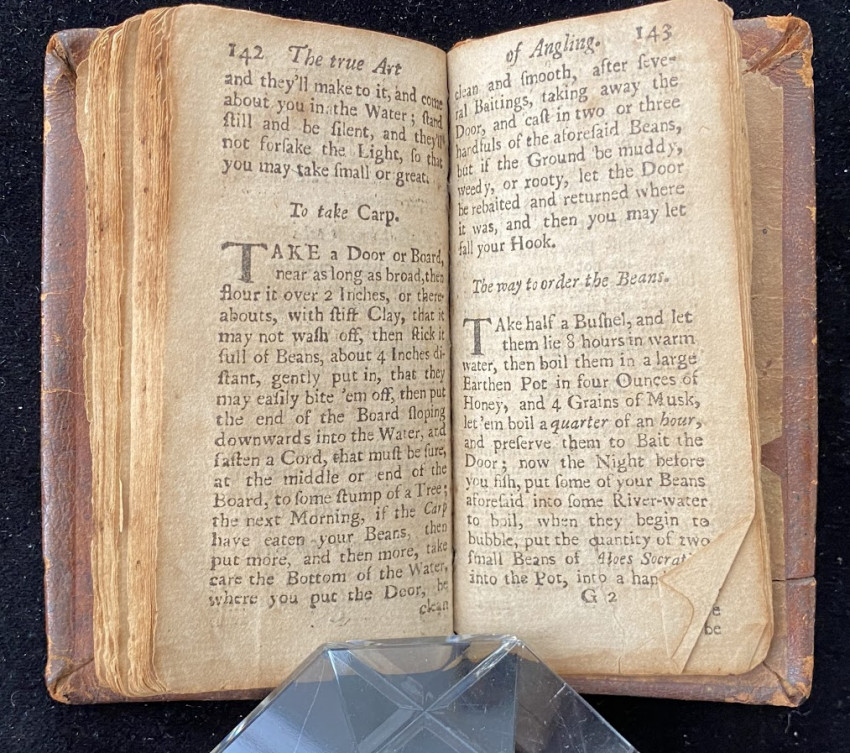 142 The true Art
and they'll make to it, and come
about you in the Water; ſtand
ſtill and be ſilent, and they'll
not forſake the Light, ſo that
you may take ſmall or great.
To take Carp.
TAKE a Door or Board,
near as long as broad, then
flour it over 2 Inches, or there-
abouts, with ſtiff Clay, that it
may not waſh off, then ſtick it
full of Beans, about 4 Inches di-
ſtant, gently put in, that they
may eaſily bite 'em off, then put
the end of the Board ſloping
downwards into the Water, and
faſten a Cord, that muſt be ſure,
at the middle or end of the
Board, to ſome ſtump of a Tree;
the next Morning, if the Carp
have eaten your Beans, then
put more, and then more, take
care the Bottom of the Water,
where you put the Door, be
clean
of Angling. 143
clean and ſmooth, after ſeve-
ral Baitings, taking away the
Door, and caſt in two or three
handfuls of the aforeſaid Beans,
but if the Ground be muddy,
weedy, or rooty, let the Door
be rebaited and returned where
it was, and then you may let
fall your Hook.
The way to order the Beans.
TAke half a Buſhel, and let
them lie 8 hours in warm
water, then boil them in a large
Earthen Pot in four Ounces of
Honey, and 4 Grains of Musk,
let 'em boil a quarter of an hour,
and preſerve them to Bait the
Door; now the Night before
you fiſh, put ſome of your Beans
aforeſaid into ſome River-water
to boil, when they begin to
bubble, put the quantity of two
ſmall Beans of Aloes
into the Pot, into a
G 2
be